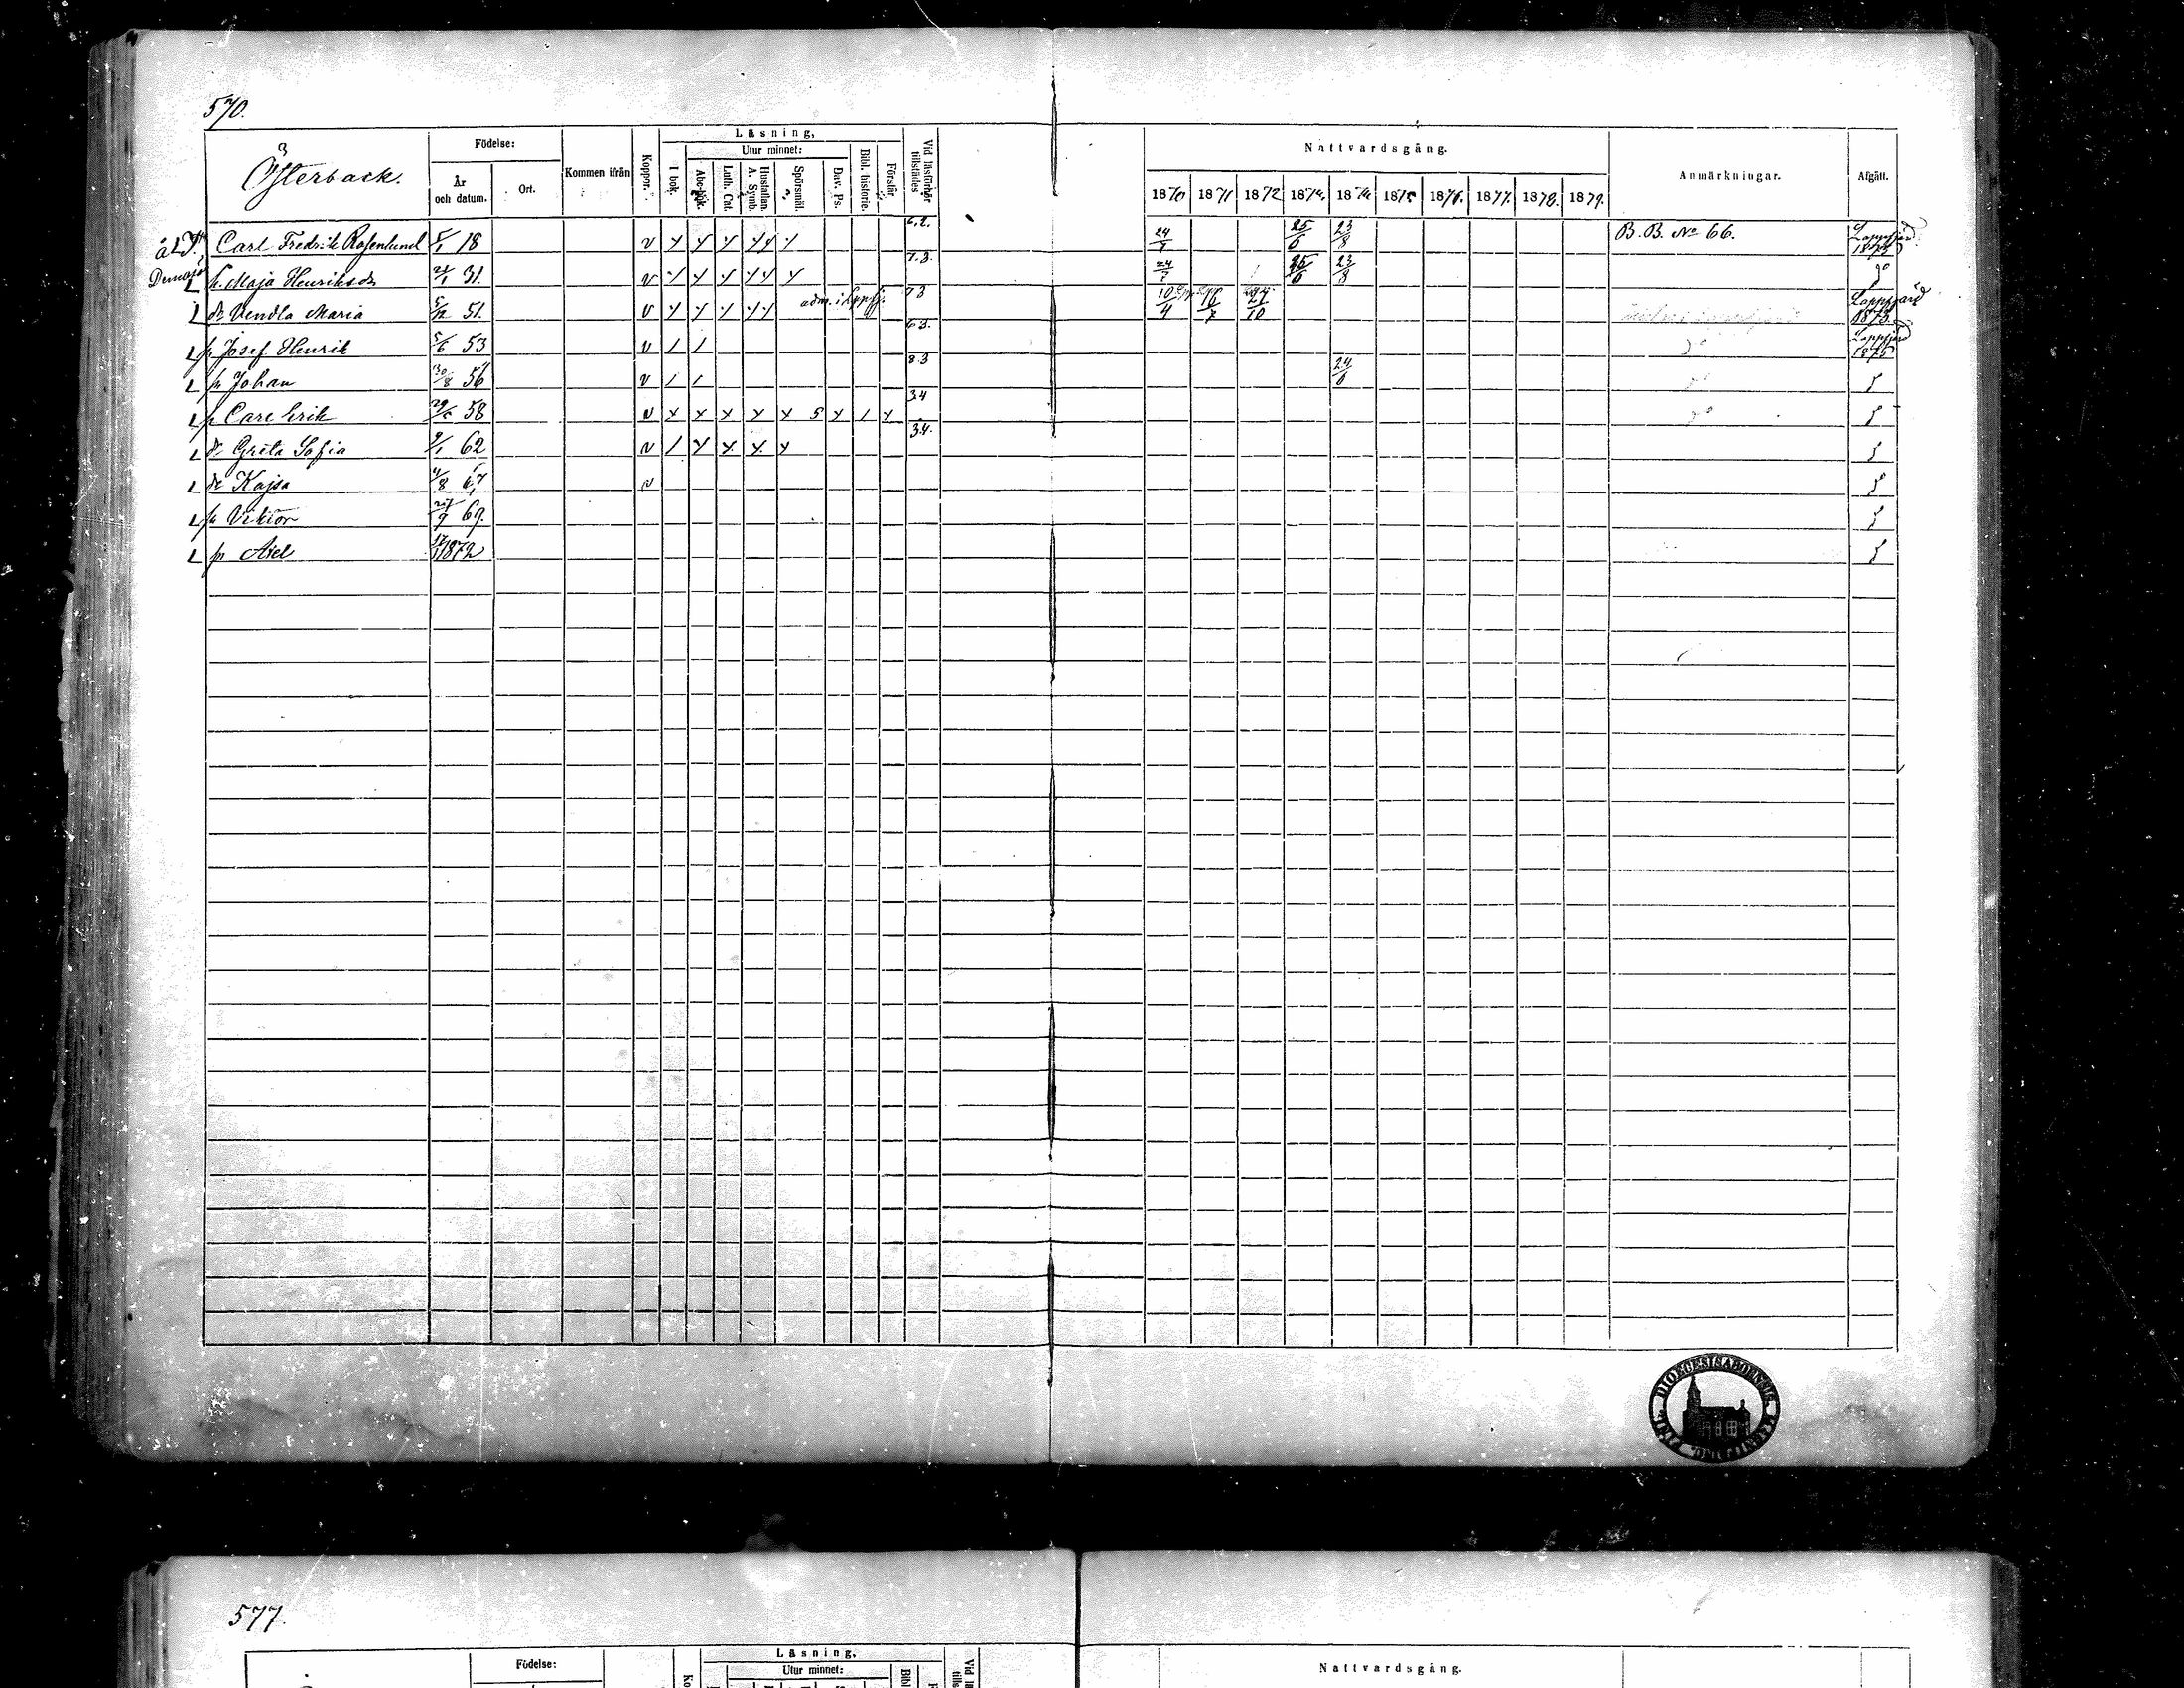 570.
Österback.
Födelse:
År och datum.
Ort.
Kommen ifrån
Koppor.
Läsning,
I bok.
Utur minnet:
Abc-bok.
Luth. Cat.
Hustaflan. A. Symb.
Spörsmål.
Dav. Ps.
Bibl. historie.
Förstår
Vid läsförhör tillstädes
Nattvardsgång.
1870 1871 1872 1873 1874 1875 1876. 1877. 1878. 1879.
Anmärkningar.
Afgått.
Carl Fredrik Rosenlund 5/1 18 v 6.2. 24/7 25/6 23/8 B. B. No 66. Lappfjärd 1875
h. Maja Henriksdr 31. v 7.3. 24/7 25/6 23/8 do
dr Vendla Maria 5/12 51. v adm. i Lappfj. 73 10/4 16/7 10 Lappfjärd 1873.
Josef Henrik 5/6 53 v 63. do Lappfjärd 1875
Johan 30/8 56 v 83 24/6 do
Carl Erik 29/6 58 v 5 34 do
dr Greta Sofia 9/1 62 v 34.
dr Kajsa 67 v
Viktor 27/9 69.
Axel 1872
DIOECESIS ABOENSIS
577.
Födelse:
Läsning,
Utur minnet:
Nattvardsgång.